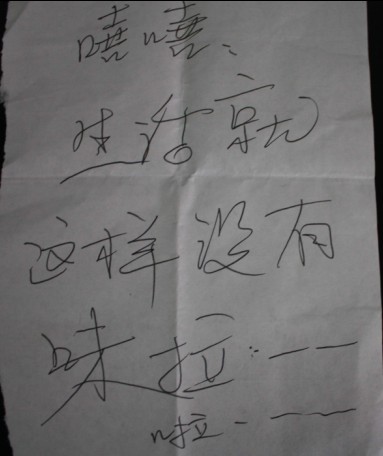 嘻嘻、
生活就
这样没有
味拉:一一
啦-一